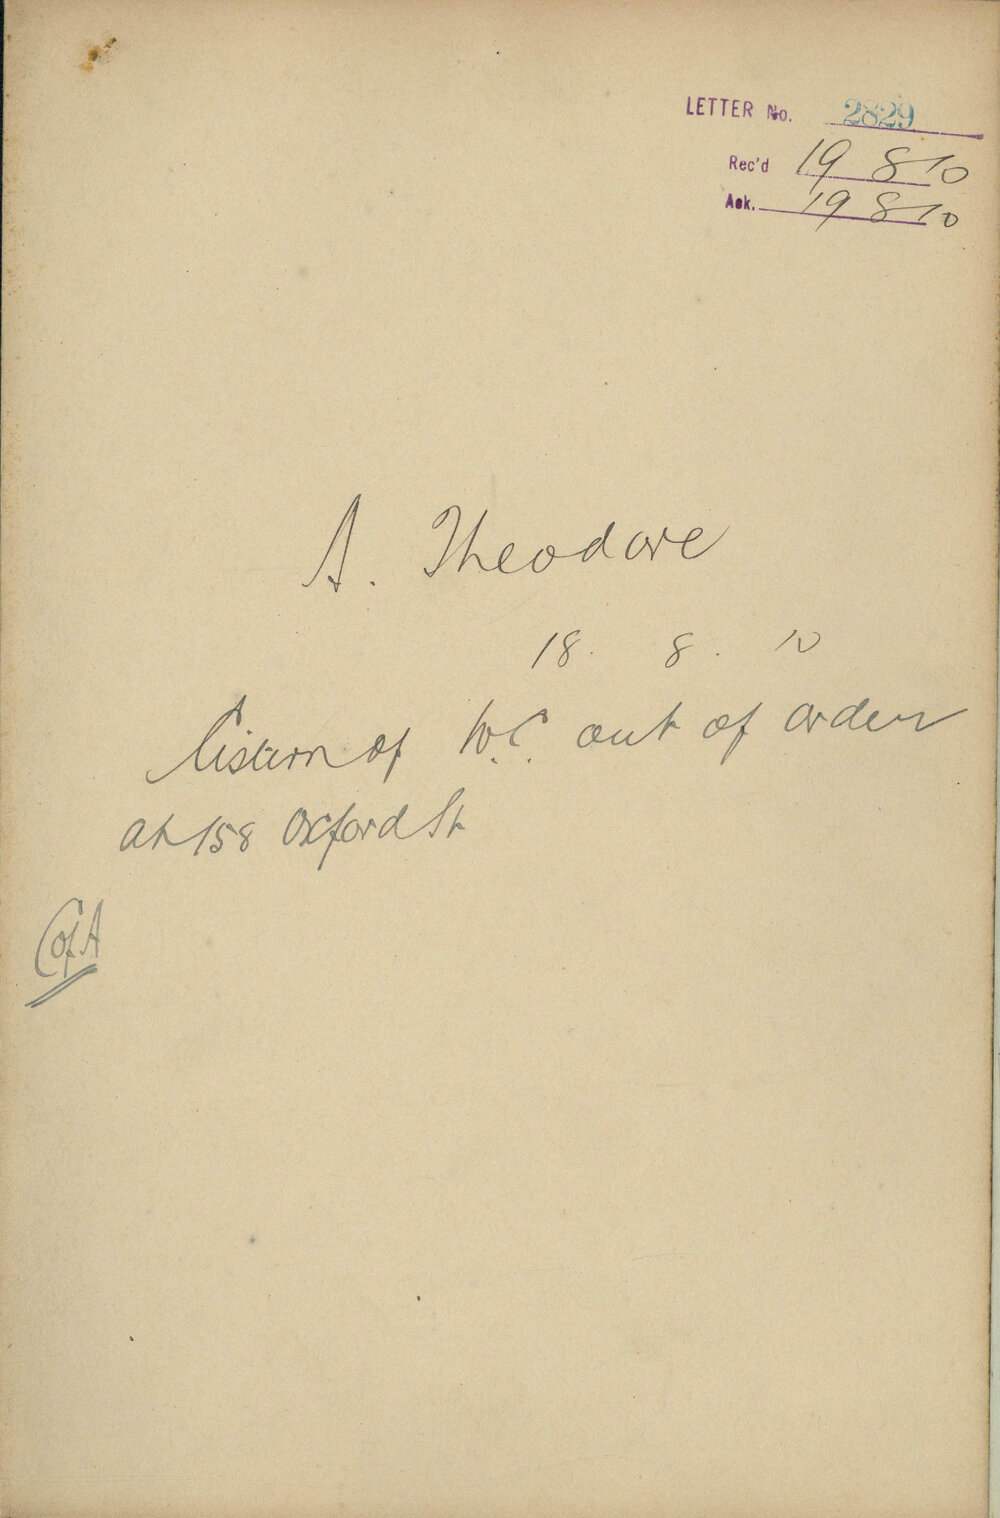 LETTER No. 2829
Rec'd 19 8 10
Ack. 19 8 10
A. Theodore
18. 8. 10
Cistern of W.C. out of order
at 158 Oxford St
C of A